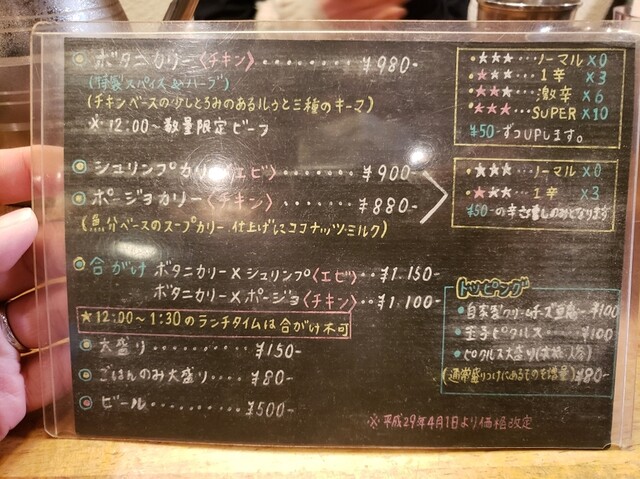 ボタニカリー〈チキン〉・・・・・・¥980-
(特製スパイス&ハーブ)
(チキンベースの少しとろみのあるルゥと三種のキーマ)
※12:00〜数量限定ビーフ
シュリンプカリー〈エビ〉・・・・・・・¥900-
ポージョカリー〈チキン〉・・・・・・・¥880-
(魚介ベースのスープカリー 仕上げにココナッツミルク)
合がけ ボタニカリー×シュリンプ〈エビ〉・・¥1.150-
ボタニカリー×ポージョ〈チキン〉・・¥1.100-
★12:00〜1:30のランチタイムは合がけ不可
大盛り・・・・・・・・・・¥150-
ごはんのみ大盛り・・・・¥80-
ビール・・・・・・・・・・¥500-
・★★★・・・ノーマル×0
・★★★・・・1辛×3
・★★★・・・激辛×6
・★★★・・・SUPER×10
¥50-ずつUPします。
・★★★・・・ノーマル×0
・★★★・・・1辛×3
¥50-の辛さ増しのみとなります
トッピング
・自家製クリームチーズ豆腐・・¥100
・玉子ピクルス・・・・・¥100
・ピクルス大盛り
(通常盛りつけにあるものを増量)¥80-
※平成29年4月1日より価格改定